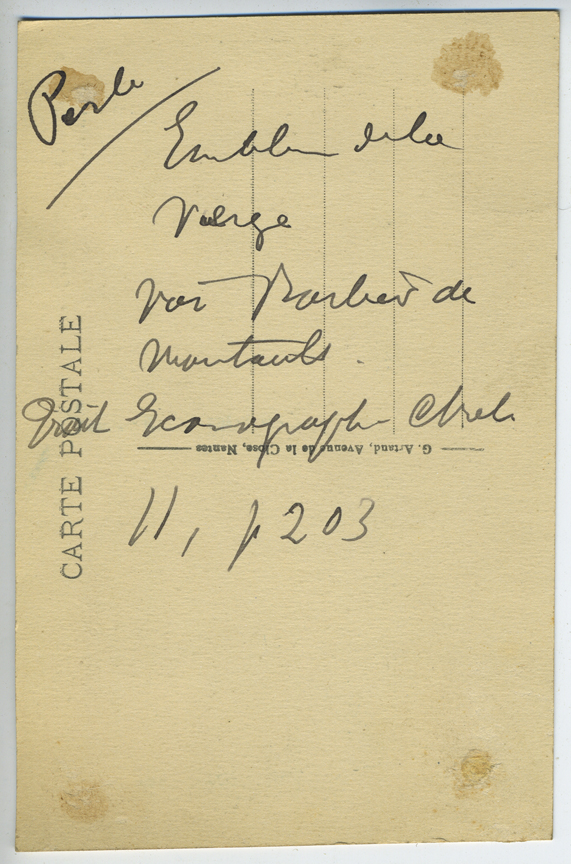 Perle
Emblem de la
Vierge
voir Barbier de
Montault.
Trait Iconographi Chret.
II, p 203
CARTE POSTALE
G. Artaud, Avenue de la Close, Nantes